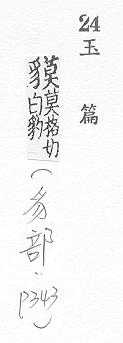 24玉篇
貘莫格切白豹
(豸部·P343)